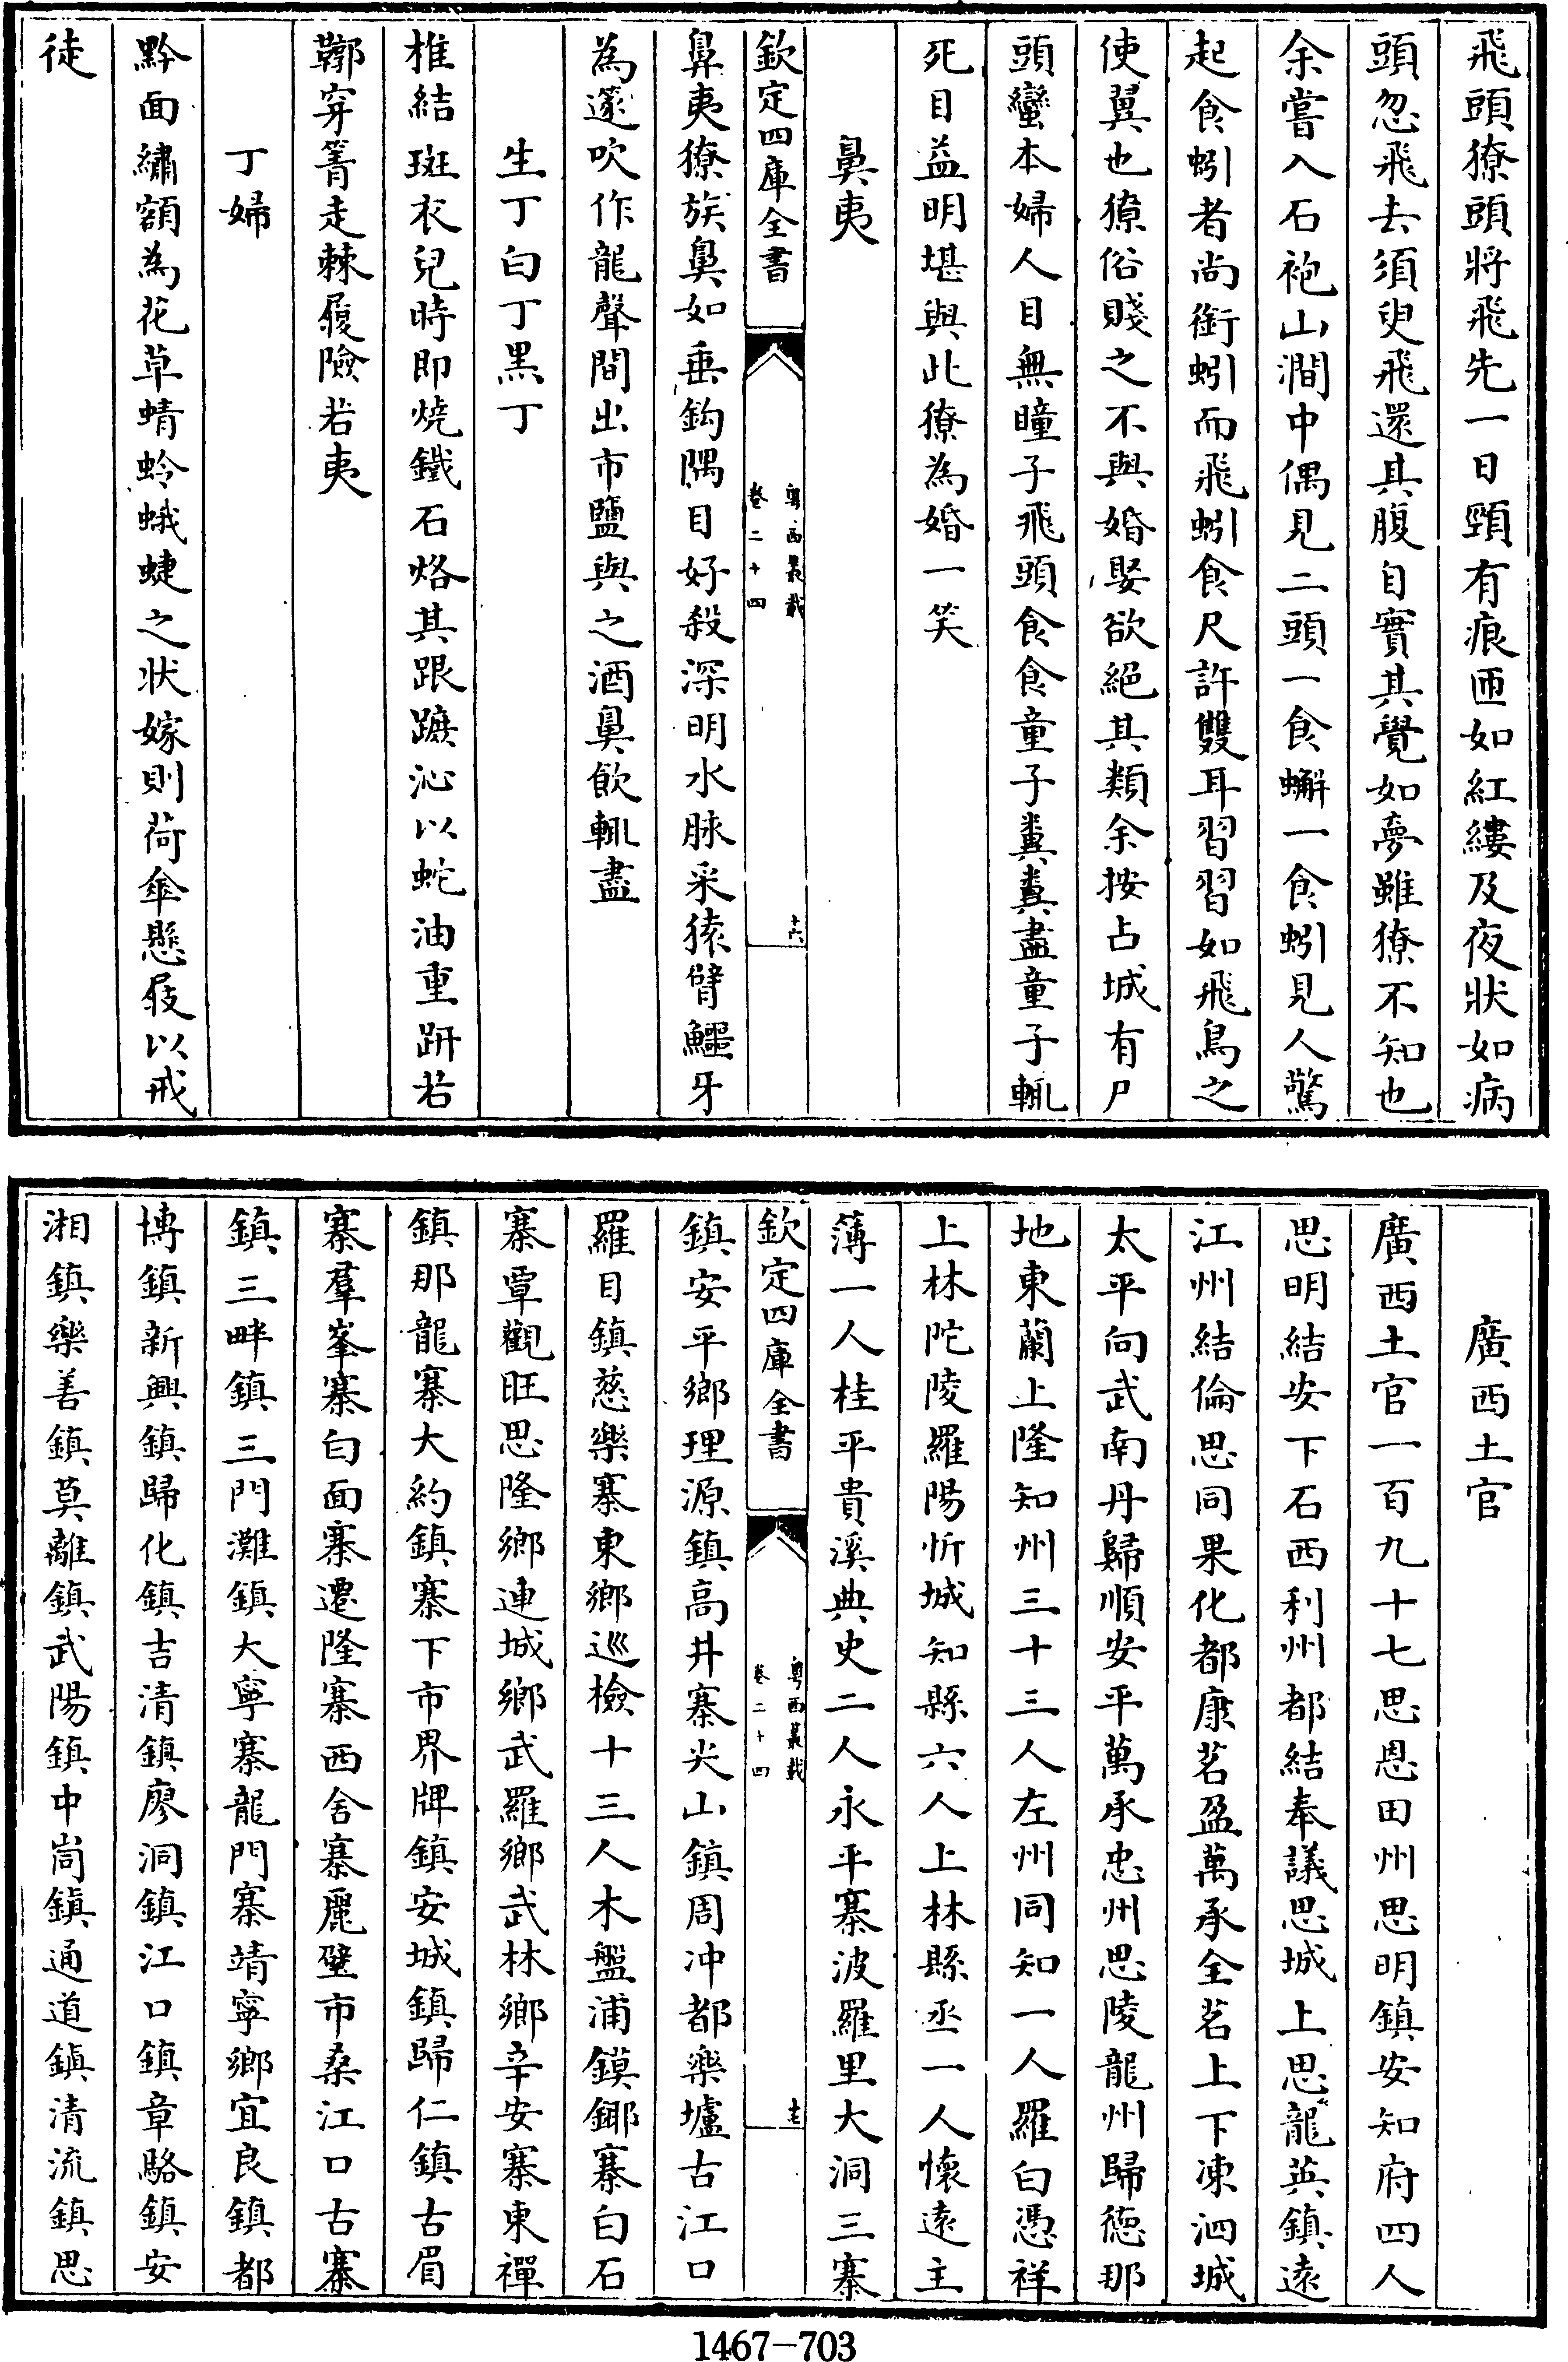 飛頭獠頭將飛先一日頸有痕匝如紅縷及夜狀如病
頭忽飛去須臾飛還其腹自實其覺如夢雖獠不知也
余嘗入石袍山澗中偶見二頭一食蠏一食蚓見人驚
起食蚓者尚銜蚓而飛蚓食尺許雙耳習習如飛鳥之
使翼也獠俗賤之不與婚娶欲絕其類余按占城有尸
頭蠻本婦人目無瞳子飛頭食食童子糞糞盡童子輒
死目益明堪與此獠為婚一笑
鼻夷
欽定四庫全書
粵西叢載
卷二十四
十六
鼻夷獠族鼻如垂鈎隅目好殺深明水脉采猿臂鱷牙
為篴吹作龍聲間出市鹽與之酒鼻飲輒盡
生丁白丁黑丁
椎結斑衣兒時即燒鐵石烙其跟蹠沁以蛇油重趼若
鞹穿箐走棘履險若夷
丁婦
黔面繡額為花草蜻蛉蛾蜨之狀嫁則荷傘懸屐以戒
徒
廣西土官
廣西土官一百九十七思恩田州思明鎮安知府四人
思明結安下石西利州都結奉議思城上思龍英鎮遠
江州結倫思同果化都康茗盈萬承全茗上下凍泗城
太平向武南丹歸順安平萬承忠州思陵龍州歸德那
地東蘭上隆知州三十三人左州同知一人羅白憑祥
上林陀陵羅陽忻城知縣六人上林縣丞一人懷遠主
薄一人桂平貴溪典史二人永平寨波羅里大洞三寨
欽定四庫全書
粵西叢載
卷二十四
十七
鎮安平鄉理源鎮高井寨尖山鎮周冲都樂壚古江口
羅目鎮慈樂寨東鄉巡檢十三人木盤浦鏌鋣寨白石
寨覃觀旺思隆鄉連城鄉武羅鄉武林鄉辛安寨東禪
鎮那龍寨大約鎮寨下市界牌鎮安城鎮歸仁鎮古眉
寨羣峯寨白面寨遷隆寨西舍寨麗壁市桑江口古寨
鎮三畔鎮三門灘鎮大寧寨龍門寨靖寧鄉宜良鎮都
博鎮新興鎮歸化鎮吉清鎮廖洞鎮江口鎮章駱鎮安
湘鎮樂善鎮莫離鎮武陽鎮中峝鎮通道鎮清流鎮思
1467—703